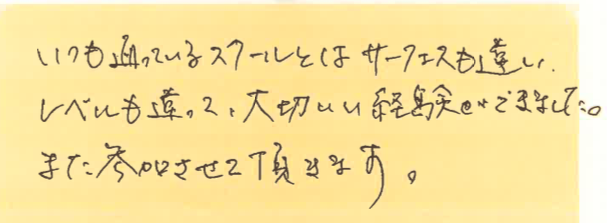 いつも通っているスクールとはサーフェスも違い、
レベルも違って、大切いい経験ができました。
また参加させて頂きます。